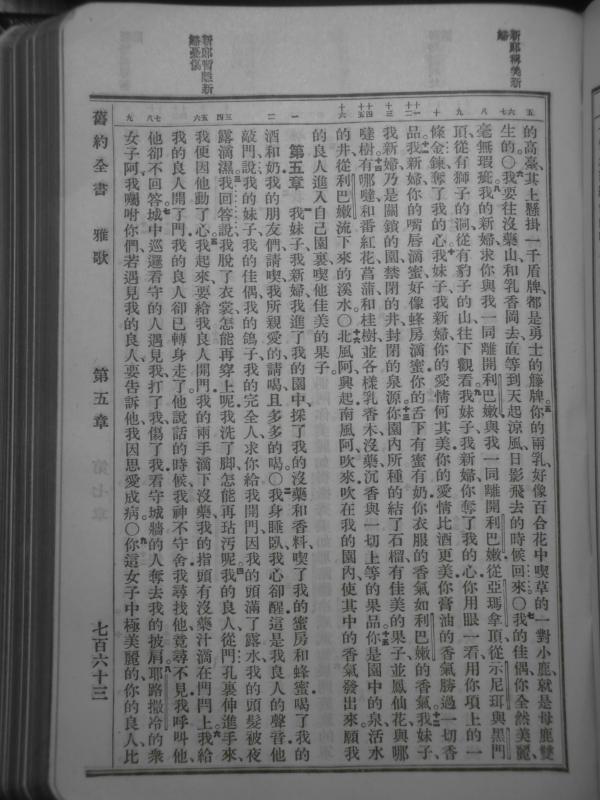 新郎稱美新
婦
新郎暫離新
婦憂傷
五 的高臺其上懸掛一千盾牌都是勇士的籐牌你的兩乳好像百合花中喫草的一對小鹿就是母鹿雙
六七 生的○我要往沒藥山和乳香岡去直等到天起涼風日影飛去的時候回來○我的佳偶你全然美麗
八 毫無瑕疵我的新婦求你與我一同離開利巴嫩與我一同離開利巴嫩從亞瑪拿頂從示尼珥與黑門
九 頂從有獅子的洞從有豹子的山往下觀看我妹子我新婦你奪了我的心你用眼一看用你項上的一
十 條金鍊奪了我的心我妹子我新婦你的愛情何其美你的愛情比酒更美你膏油的香氣勝過一切香
十一十二 品我新婦你的嘴唇滴蜜好像蜂房滴蜜你的舌下有蜜有奶你衣服的香氣如利巴嫩的香氣我妹子
十三 我新婦乃是關鎖的園禁閉的井封閉的泉源你園內所種的結了石榴有佳美的果子並鳳仙花與哪
十四十五 噠樹有哪噠和番紅花菖蒲和桂樹並各樣乳香木沒藥沉香與一切上等的果品你是園中的泉活水
十六 的井從利巴嫩流下來的溪水○北風阿興起南風阿吹來吹在我的園內使其中的香氣發出來願我
的良人進入自己園裏喫他佳美的果子
一 第五章 我妹子我新婦我進了我的園中採了我的沒藥和香料喫了我的蜜房和蜂蜜喝了我的
二 酒和奶我的朋友們請喫我所親愛的請喝且多多的喝○我身睡臥我心卻醒這是我良人的聲音他
敲門說我的妹子我的佳偶我的鴿子我的完全人求你給我開門因我的頭滿了露水我的頭髮被夜
三四 露滴濕我回答說我脫了衣裳怎能再穿上呢我洗了脚怎能再玷汚呢我的良人從門孔裏伸進手來
五六 我便因他動了心我起來要給我良人開門我的兩手滴下沒藥我的指頭有沒藥汁滴在門閂上我給
我的良人開了門我的良人卻已轉身走了他說話的時候我神不守舍我尋找他竟尋不見我呼叫他
七八 他卻不回答城中巡邏看守的人遇見我打了我傷了我看守城牆的人奪去我的披肩耶路撒冷的衆
九 女子阿我囑咐你們若遇見我的良人要告訴他我因思愛成病○你這女子中極美麗的你的良人比
舊約全書 雅歌 第五章 七百六十三